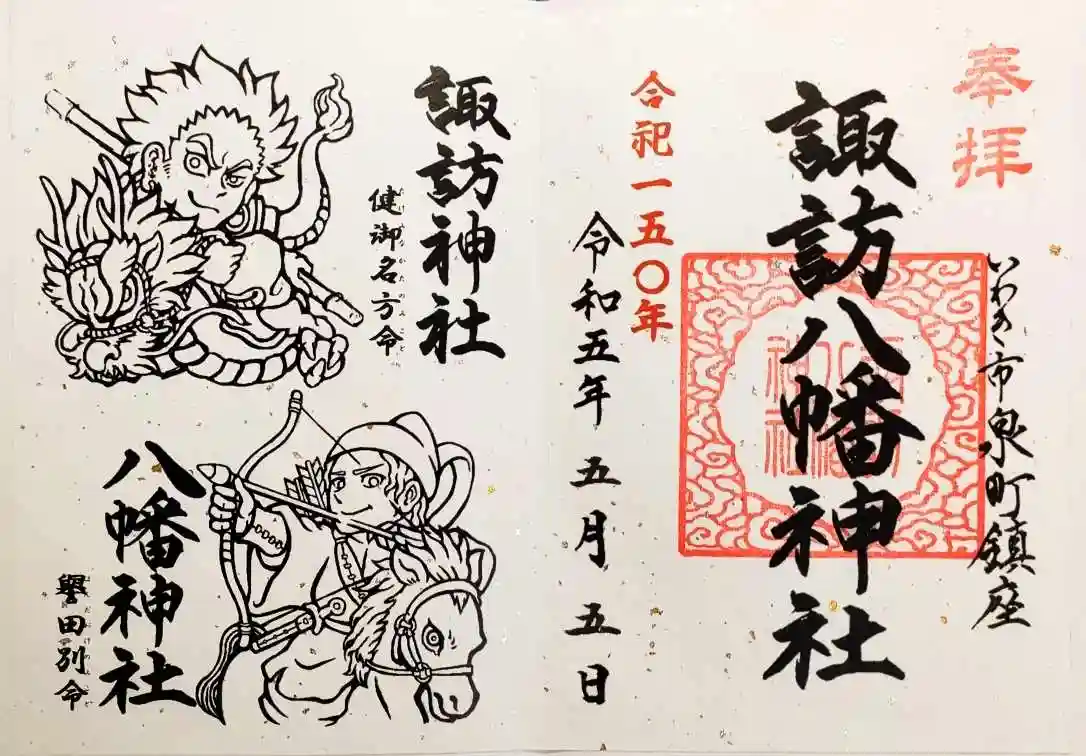 奉拝
いわき市泉町鎮座
諏訪八幡神社
合祀一五〇年
令和五年 五月 五日
諏訪神社
健御名方命
八幡神社
誉田別命